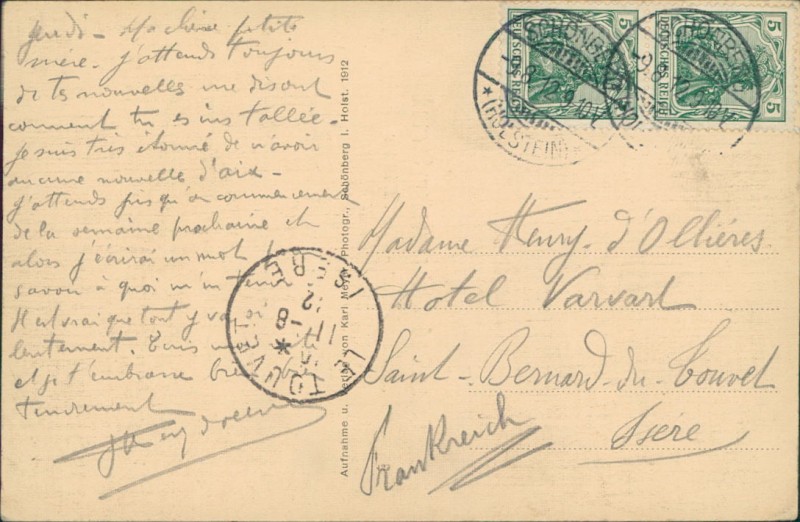 Jeudi - Ma chère petite
mère. J'attends toujours
de tes nouvelles me disant
comment tu es installée.
Je suis très étonné de n'avoir
aucune nouvelle d'Aix -
J'attends jusqu'au commencement
de la semaine prochaine et
alors j'écrirai un mot pour
savoir à quoi m'en tenir
Il est vrai que tout y va si
lentement.
et je t'embrasse bien
tendrement
Aufnahme u. Verlag von Karl Photogr., Schönberg i. Holst. 1912
5 5
DEUTSCHES REICH DEUTSCHES REICH
SCHÖNBERG
9.8.12.9-10V.
* (HOLSTEIN)
SCHÖNBERG
9.8.12.9-10V.
LE TOUVET
11 - 8
12
ISERE
Madame Henry d'Ollières
Hotel Varvart
Saint-Bernard-du-Touvet
Isère
Frankreich